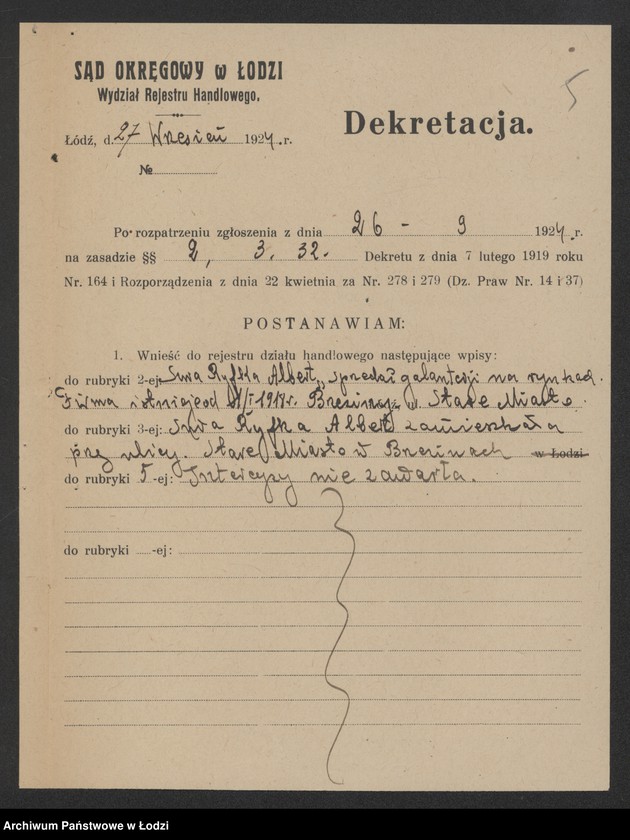 SĄD OKRĘGOWY w ŁODZI
Wydział Rejestru Handlowego.
5
Dekretacja.
Łódź, d. 27 Wrzesień 1924.r.
№
Po rozpatrzeniu zgłoszenia z dnia 26 - 9 1924.r.
na zasadzie §§ 2, 3. 32. Dekretu z dnia 7 lutego 1919 roku
Nr. 164 i Rozporządzenia z dnia 22 kwietnia za Nr. 278 i 279 (Dz. Praw Nr. 14 i 37)
POSTANAWIAM:
1. Wnieść do rejestru działu handlowego następujące wpisy:
do rubryki 2-ej: Ryfka Albert, sprzedaż galanterji na rynkach.
Firma istnieje od 1918r. Brzeziny, ul. Stare Miasto.
do rubryki 3-ej: Ryfka Albert zamieszkała
przy ulicy. Stare Miasto w Brzezinach w Łodzi
do rubryki 5-ej: Intercyzy nie zawarła.
do rubryki -ej:
Archiwum Państwowe w Łodzi